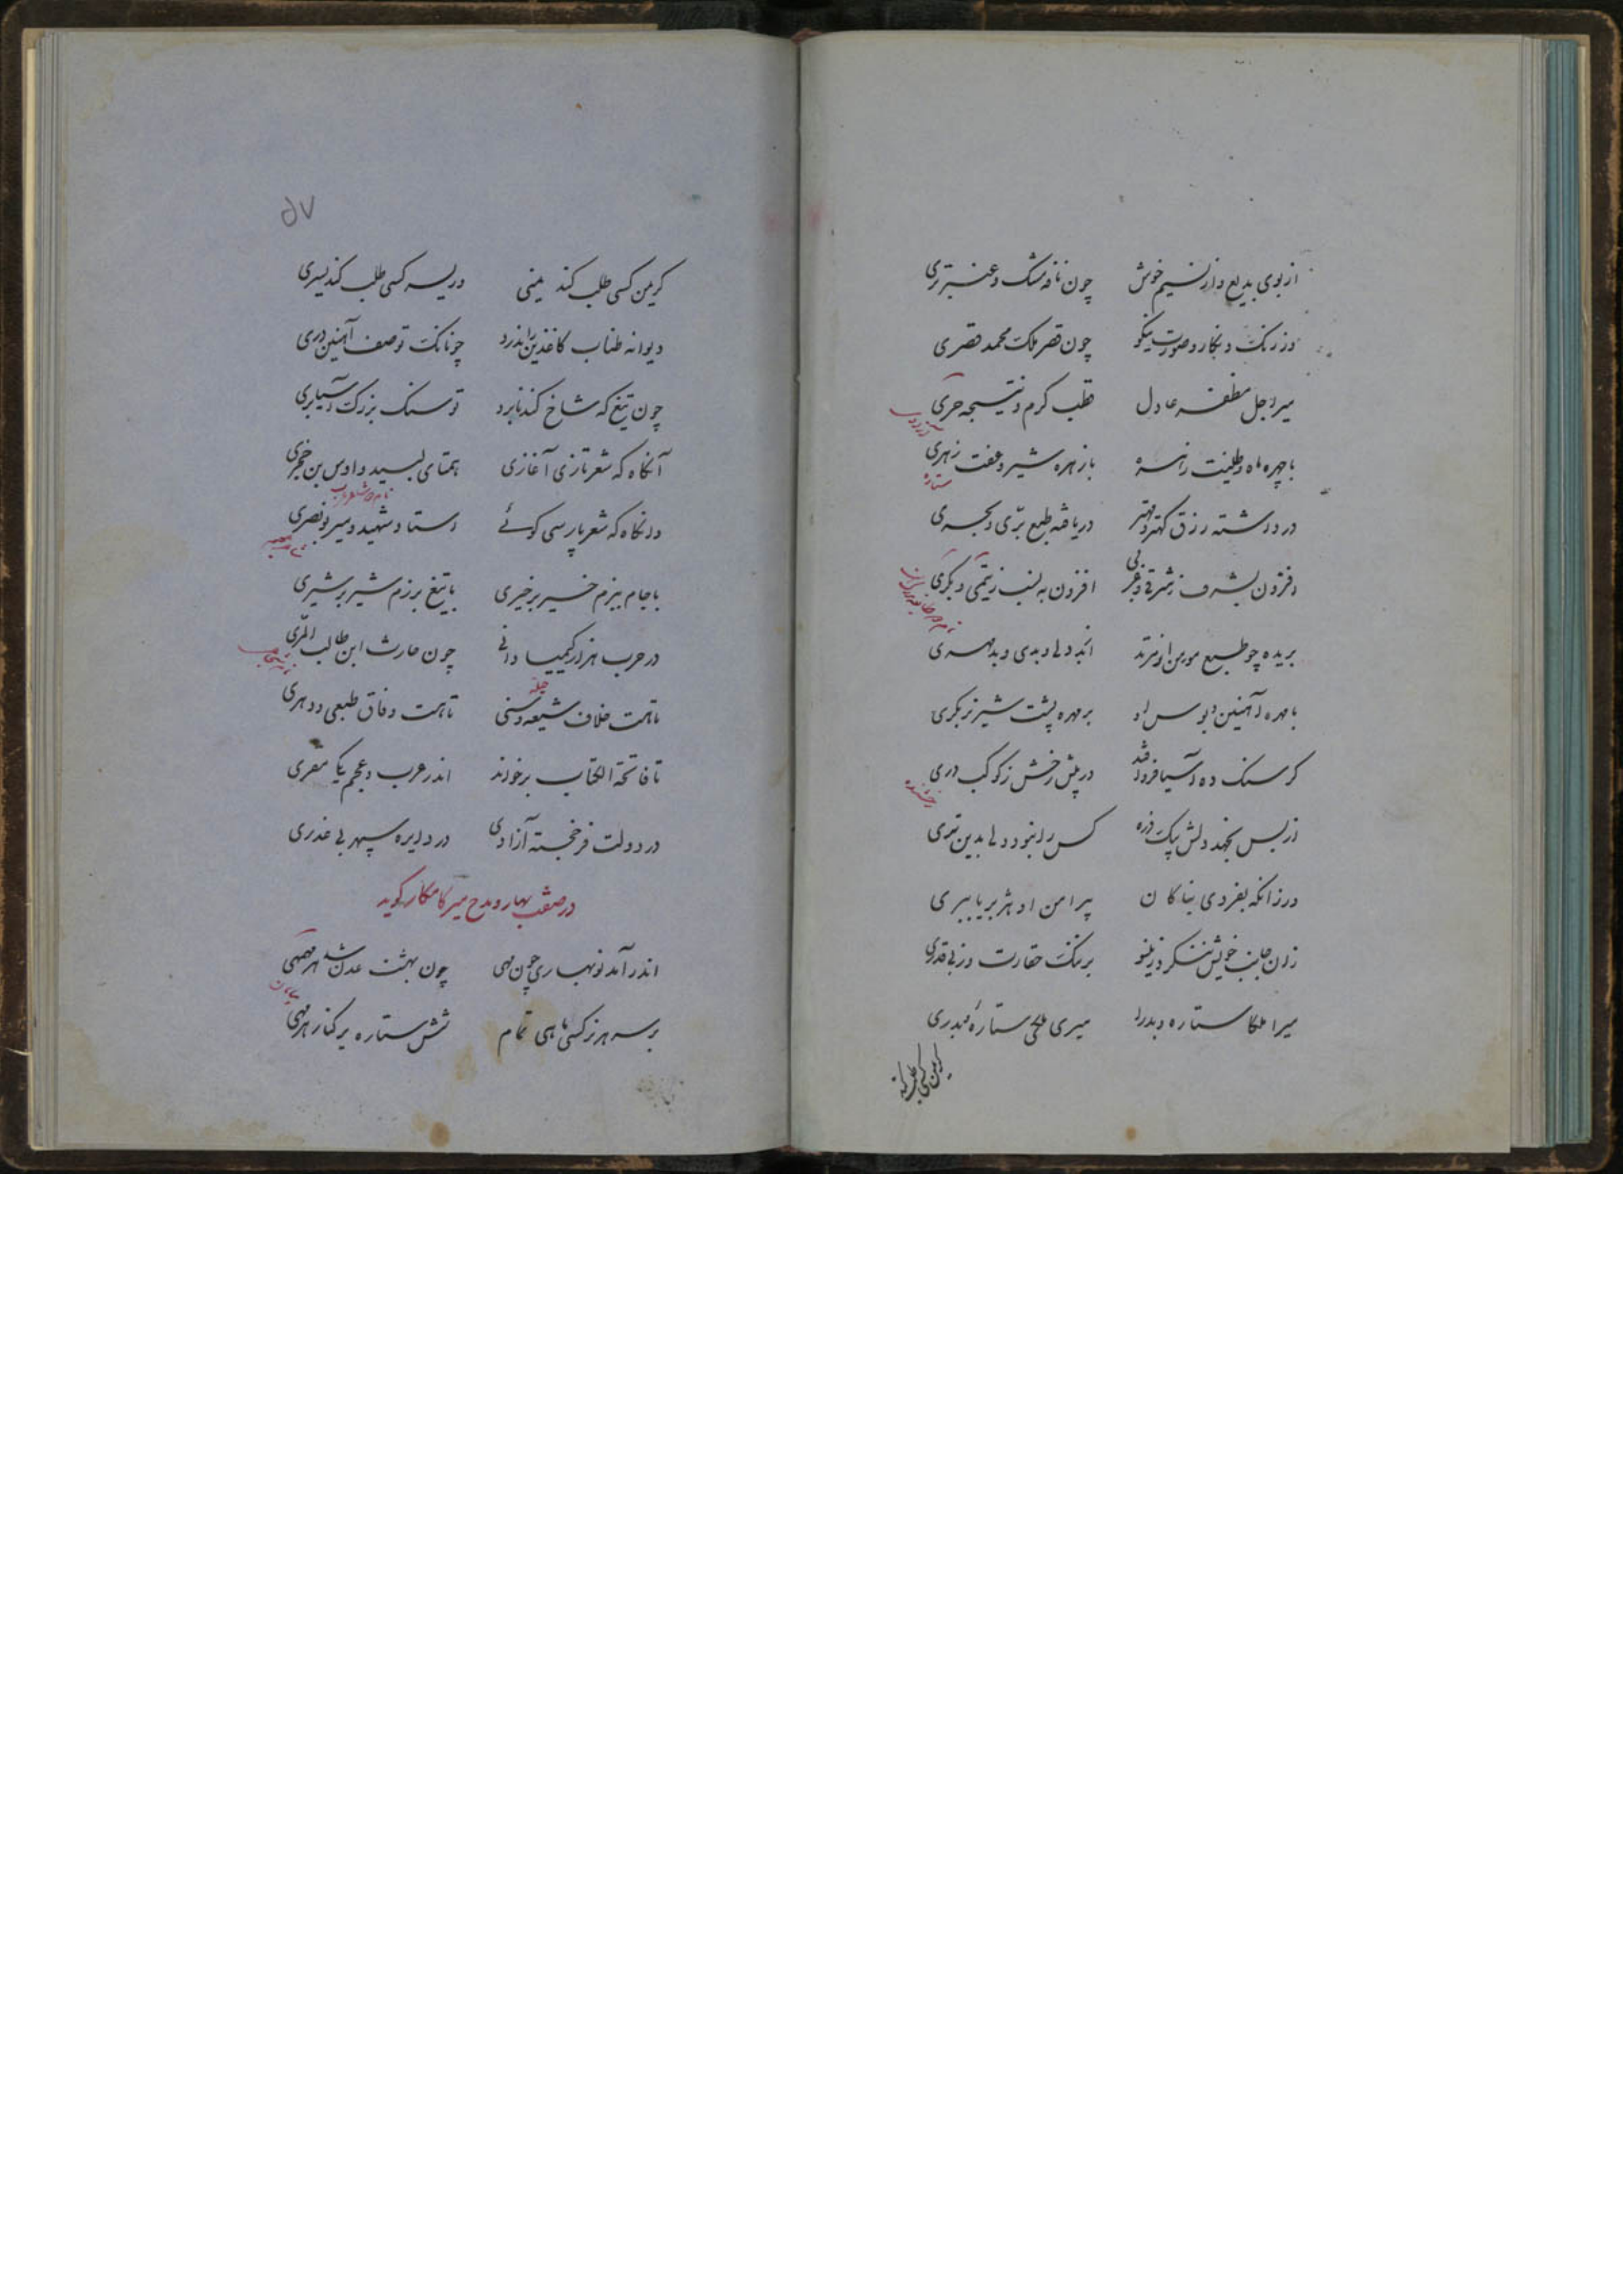 از بوی بدیع و از نسیم خوش چون نافه مشک و عنبر تری
وز رنک و نکار و صورت نیکو چون قصر ملک محمد قصری
میر اجل مظفر عادل قطب کرم و نتیجه حری
با چهره ماه و طلینت زهره با زهره شیر و عفت زهری
ستاره
در داشته رزق کهتر و مهتر دریافته طبع بری و بحری
افزون بشرف ز شرقی و غربی افزون به نسب ز تیمی و بکری
بریده چو طبع مومن او مرتد از بد دلی و بدی و بد مهری
با مهره آهنین دبوس او بر مهره پشت شیر نر بکری
کر سنک ده آسیا فرو افتد در پیش رخش ز کوکب دری
رخشنده
از بس نجهد دلش بیک ذره کس را نبود دلی بدین تبری
ورزانکه بغردی بناکاه پیرامن او هژبر یا ببری
زان جانب خویش ننکرد زینسو برننک حقارت وز بی قدری
میرا ملکا ستاره و بدرا میری ملکی ستاره بدری
کر من کسی طلب کند
۵۷
کر من کسی طلب کند یمنی در یسر کسی طلب کند یسری
دیوانه طناب کاغذین را ندرد چونانک تو صف آهنین دری
چون تیغ که شاخ کندنا برد تو سنک بزرک آسیا بری
آنکاه که شعر تازی آغازی همتای لبید و اوس بن حجری
نام دو شاعر عرب
وانکاه که شعر پارسی کوئی استاد شهید و میر بونصری
با جام ببزم خسیر بر خیری با تیغ برزم شیر بر شیری
در حرب هزار کیمیا دانی چون حارث ابن ظالب المری
حیله
تا هست خلاف شیعه و سنی تا هست وفاق طبعی و دهری
تا فاتحة الکتاب برخواند اندر عرب و عجم یکا مقری
در دولت فرخجسته آزادی در دایره سپهر بی غدری
در صفت بهار و مدح میر کامکار کوید
اندر آمد نوبهاری چون مهی چون بهشت عدن شد هر مهمهی
بیابان
بر سر هر نرکسی ماهی تمام شش ستاره بر کنار هر مهی